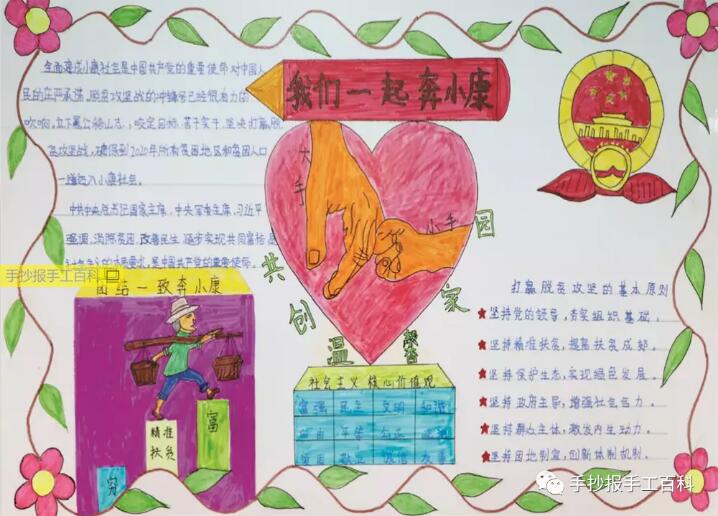 我们一起奔小康
全面建成小康社会是中国共产党的重要使命对中国人
民的庄严承诺。脱贫攻坚战的冲锋号已经很有力的
吹响。立下愚公移山志,咬定目标、苦干实干,坚决打赢脱
贫攻坚战,确保到2020年所有贫困地区和贫困人口
一道迈入小康社会。
中共中央总书记国家主席,中央军委主席,习近平
强调,消除贫困,改善民生,逐步实现共同富裕是
本质要求,是中国共产党的重要使命。
手抄报手工百科
团结一致奔小康
富
精准
扶贫
穷
大手
小手
共创温馨家园
社会主义 核心价值观
富强 民主 文明 和谐
自由 平等 公正 法治
爱国 敬业 诚信 友善
打赢脱贫攻坚的基本原则
坚持党的领导,夯实组织基础。
坚持精准扶贫,提高扶贫成效。
坚持保护生态,实现绿色发展。
坚持政府主导,增强社会合力。
坚持群众主体,激发内生动力。
坚持因地制宜,创新体制机制。
手抄报手工百科